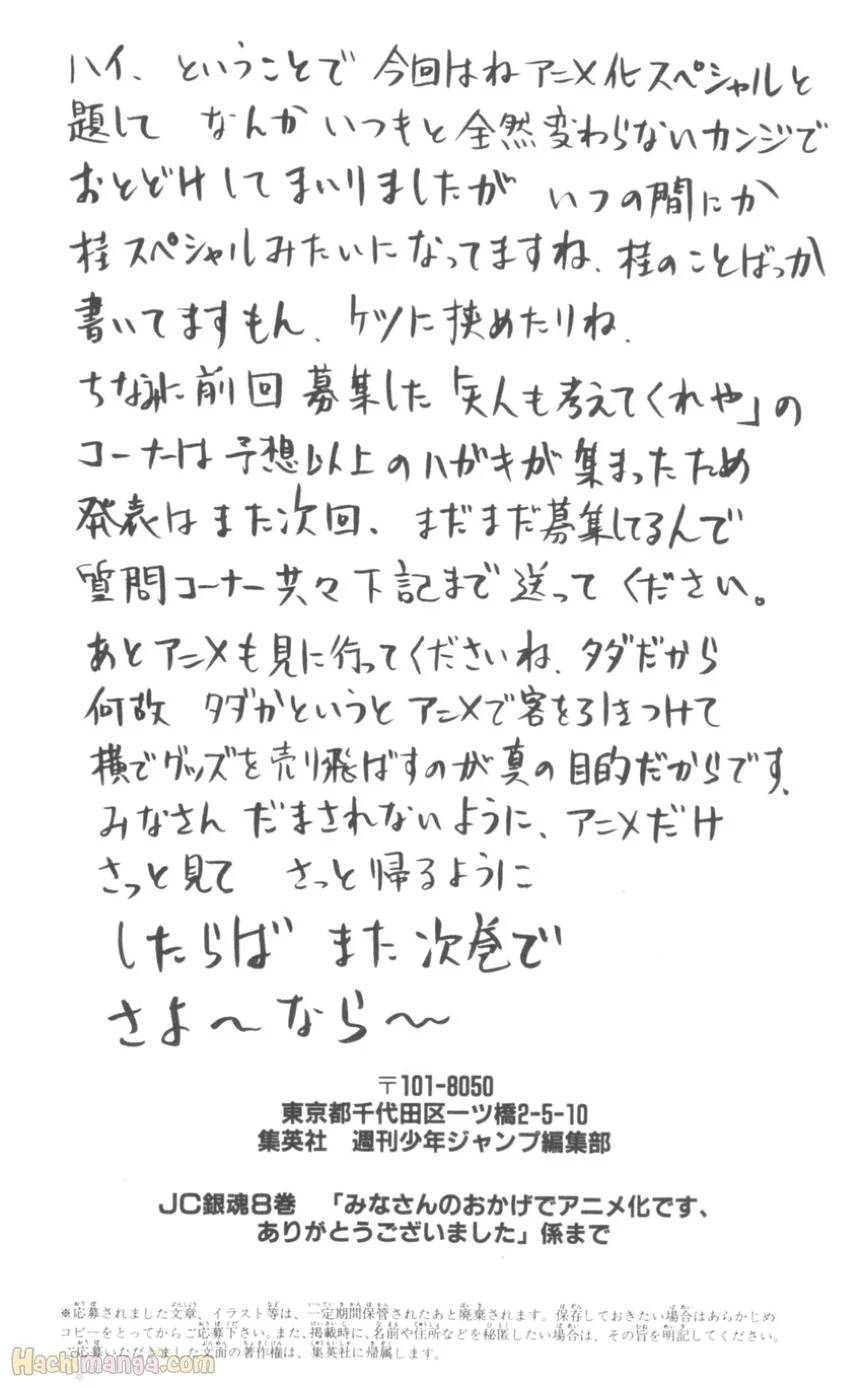 ハイ、ということで 今回はねアニメ化スペシャルと
題して なんか いつもと全然変わらないカンジで
おとどけしてまいりましたが いつの間にか
桂スペシャルみたいになってますね、桂のことばっか
書いてますもん、ケツに挟めたりね、
ちなみに前回募集した「天人も考えてくれや」の
コーナーは予想以上のハガキが集まったため
発表はまた次回、まだまだ募集してるんで
質問コーナー共々下記まで送ってください。
あとアニメも見に行ってくださいね、タダだから
何故 タダかというとアニメで客を引きつけて
横でグッズを売り飛ばすのが真の目的だからです、
みなさん だまされないように、アニメだけ
さっと見て さっと帰るように
したらば また次巻で
さよ〜なら〜
〒101-8050
東京都千代田区一ツ橋2-5-10
集英社 週刊少年ジャンプ編集部
JC銀魂8巻 「みなさんのおかげでアニメ化です、
ありがとうございました」係まで
※応募されました文章、イラスト等は、一定期間保管されたあと廃棄されます。保存しておきたい場合はあらかじめ
コピーをとってからご応募下さい。また、掲載時に、名前や住所などを秘匿したい場合は、その旨を明記してください。
ご応募いただきました文面の著作権は、集英社に帰属します。
Hachimanga.com